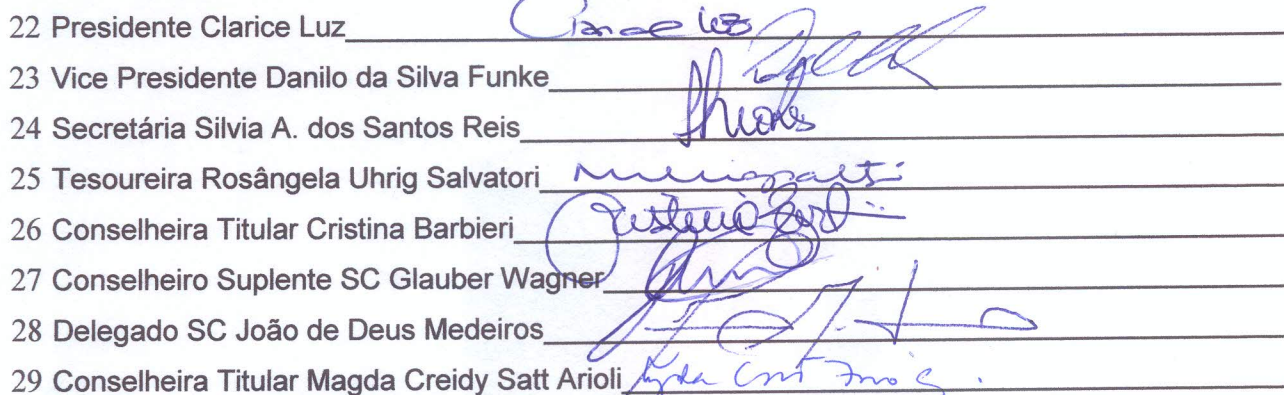 22 Presidente Clarice Luz
23 Vice Presidente Danilo da Silva Funke
24 Secretária Silvia A. dos Santos Reis
25 Tesoureira Rosângela Uhrig Salvatori
26 Conselheira Titular Cristina Barbieri
27 Conselheiro Suplente SC Glauber Wagner
28 Delegado SC João de Deus Medeiros
29 Conselheira Titular Magda Creidy Satt Arioli